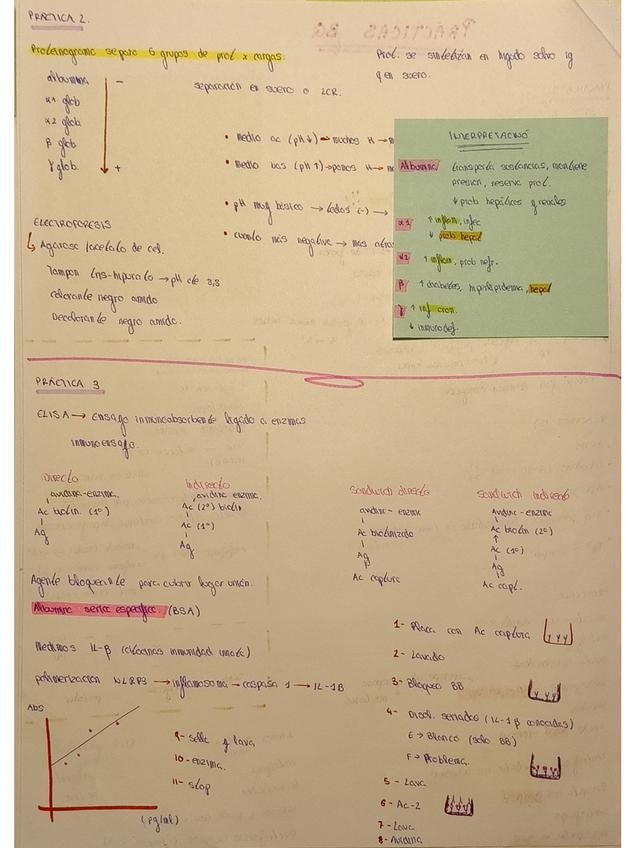 PRÁCTICA 2.
Proteinograma separa 6 grupos de prot x cargas.
Prot. se sintetizan en hígado salvo ig
q en suero.
albumina –
α1 glob
α2 glob
β glob
γ glob. +
separación en suero o LCR.
• Medio ac (pH↓) → muchos H →
• Medio bas (pH↑) → pocos H →
• pH muy básico → todos (-) →
• cuanto más negative → mas
ELECTROFORESIS
↳ Agarosa /acetato de cel.
Tampon tris-hipurato → pH de
colorante negro amido
Decolorante negro amido.
INTERPRETACINÓ
Albumina transporta sustancias, mantiene
presion, reserva prot.
↓ prob hepáticos y renales
α1 ↑ inflam, infec
↓ prob hepat
α2 ↑ inflam, prob nefr.
β ↑ diabetes, hiperlipidemia, hepat
γ ↑ inf cron.
↓ inmunodef.
PRÁCTICA 3
ELISA → Ensayo inmunoabsorbente ligado a enzimas
inmunoensayo.
Directo
avidina-enzima.
Ac biotin. (1º)
Ag
Indirecto
avidina enzima.
Ac (2º) biotin
Ac (1º)
Ag
Sandwich directo
avidina - enzima
Ac biotinizado
Ag
Ac captura
Sandwich indirecto
Avidina - enzima
Ac biotin (2º)
↑
Ac (1º)
Ag
Ac capt.
Agente bloqueante para cubrir lugar unión.
Albumina serica especifica. (BSA)
Medimos IL-β (citocinas inmunidad innata)
polimerización NLRP3 → inflamosoma → caspasa 1 → IL-1B
ABS
(pg/ml)
9- sella y lava
10- enzima.
11- stop
1- Placa con Ac captura
2- Lavado
3- Bloqueo BB
4- Disol. seriadas (IL-1β conocidas)
E → Blanco (solo BB)
F → Problema.
5 - Lava
6 - Ac-2
7 - Lava
8- Avidina